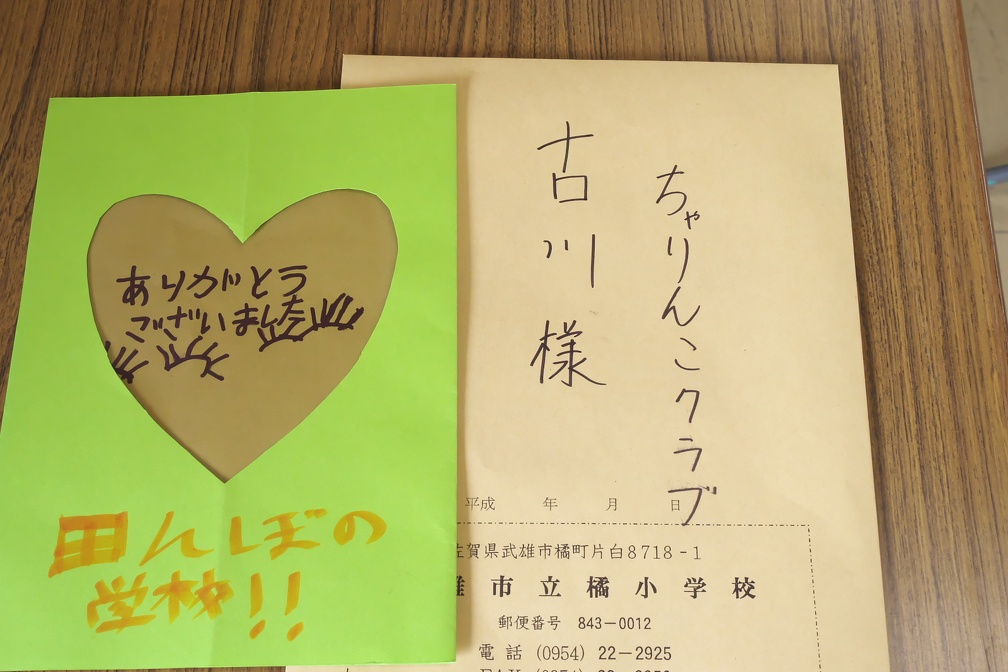 ありがとう
ございました
田んぼの
学校!!
ちゃりんこクラブ
古川様
平成 年 月 日
佐賀県武雄市橘町片白8718-1
雄市立橘小学校
郵便番号 843-0012
電話 (0954) 22-2925